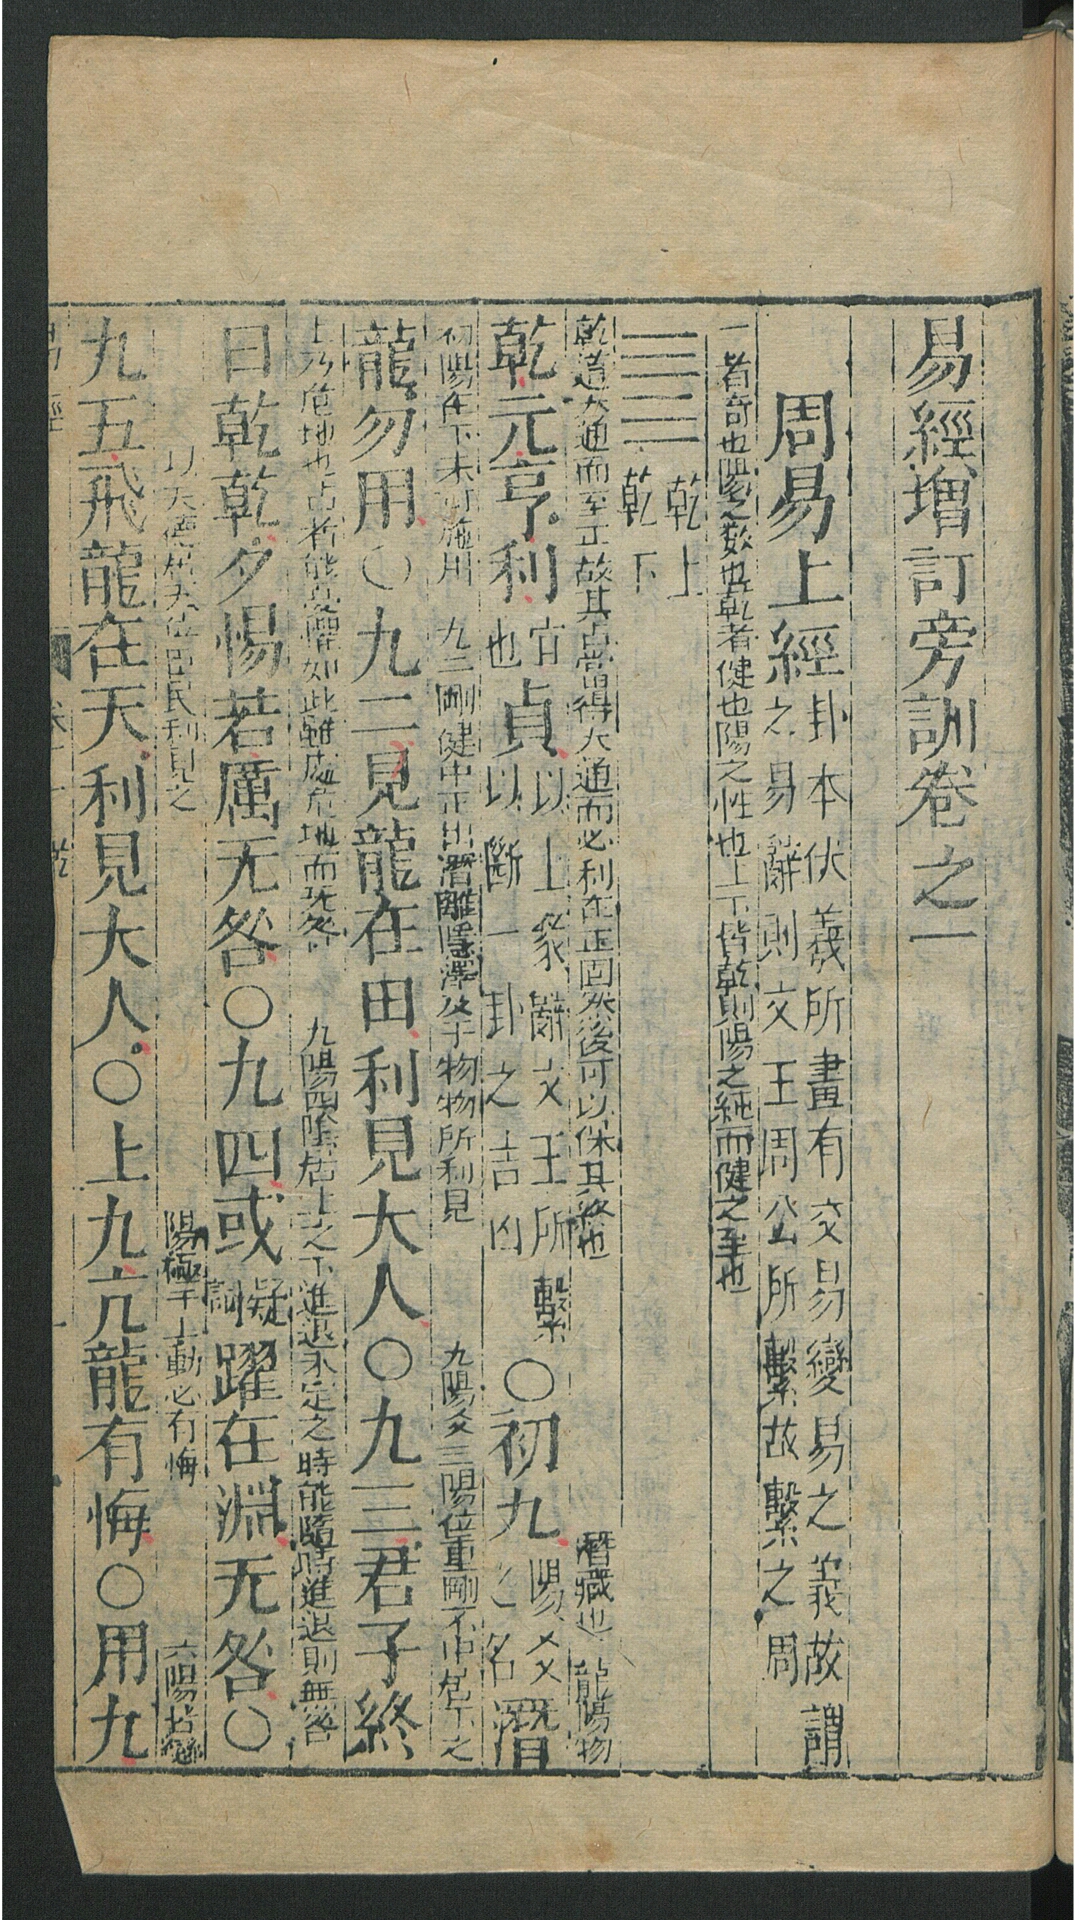 易經增訂旁訓卷之一
周易上經
卦本伏羲所畫有交易變易之義故謂
之易辭則文王周公所繫故繫之周
一者奇也陽之數也乾者健也陽之性也上下皆乾則陽之純而健之至也
乾上
乾下
乾道大通而至正故其占當得大通而必利在正固然後可以保其終也
潛藏也
龍陽物
乾元亨利宜也貞以上彖辭文王所繫以斷一卦之吉凶〇初九陽爻之名潛
初陽在下未可施用
九二剛健中正出潛離隱澤及于物物所利見
九陽爻三陽位重剛不中居下之
龍勿用〇九二見龍在田利見大人〇九三君子終
上乃危地也占者能憂懼如此雖處危地而无咎
九陽四陰居上之下進退未定之時能隨時進退則無咎
日乾乾夕惕若厲无咎〇九四或疑詞躍在淵无咎〇
以天德居天位臣民利見之
陽極于上動必有悔
六陽皆變
九五飛龍在天利見大人〇上九亢龍有悔〇用九